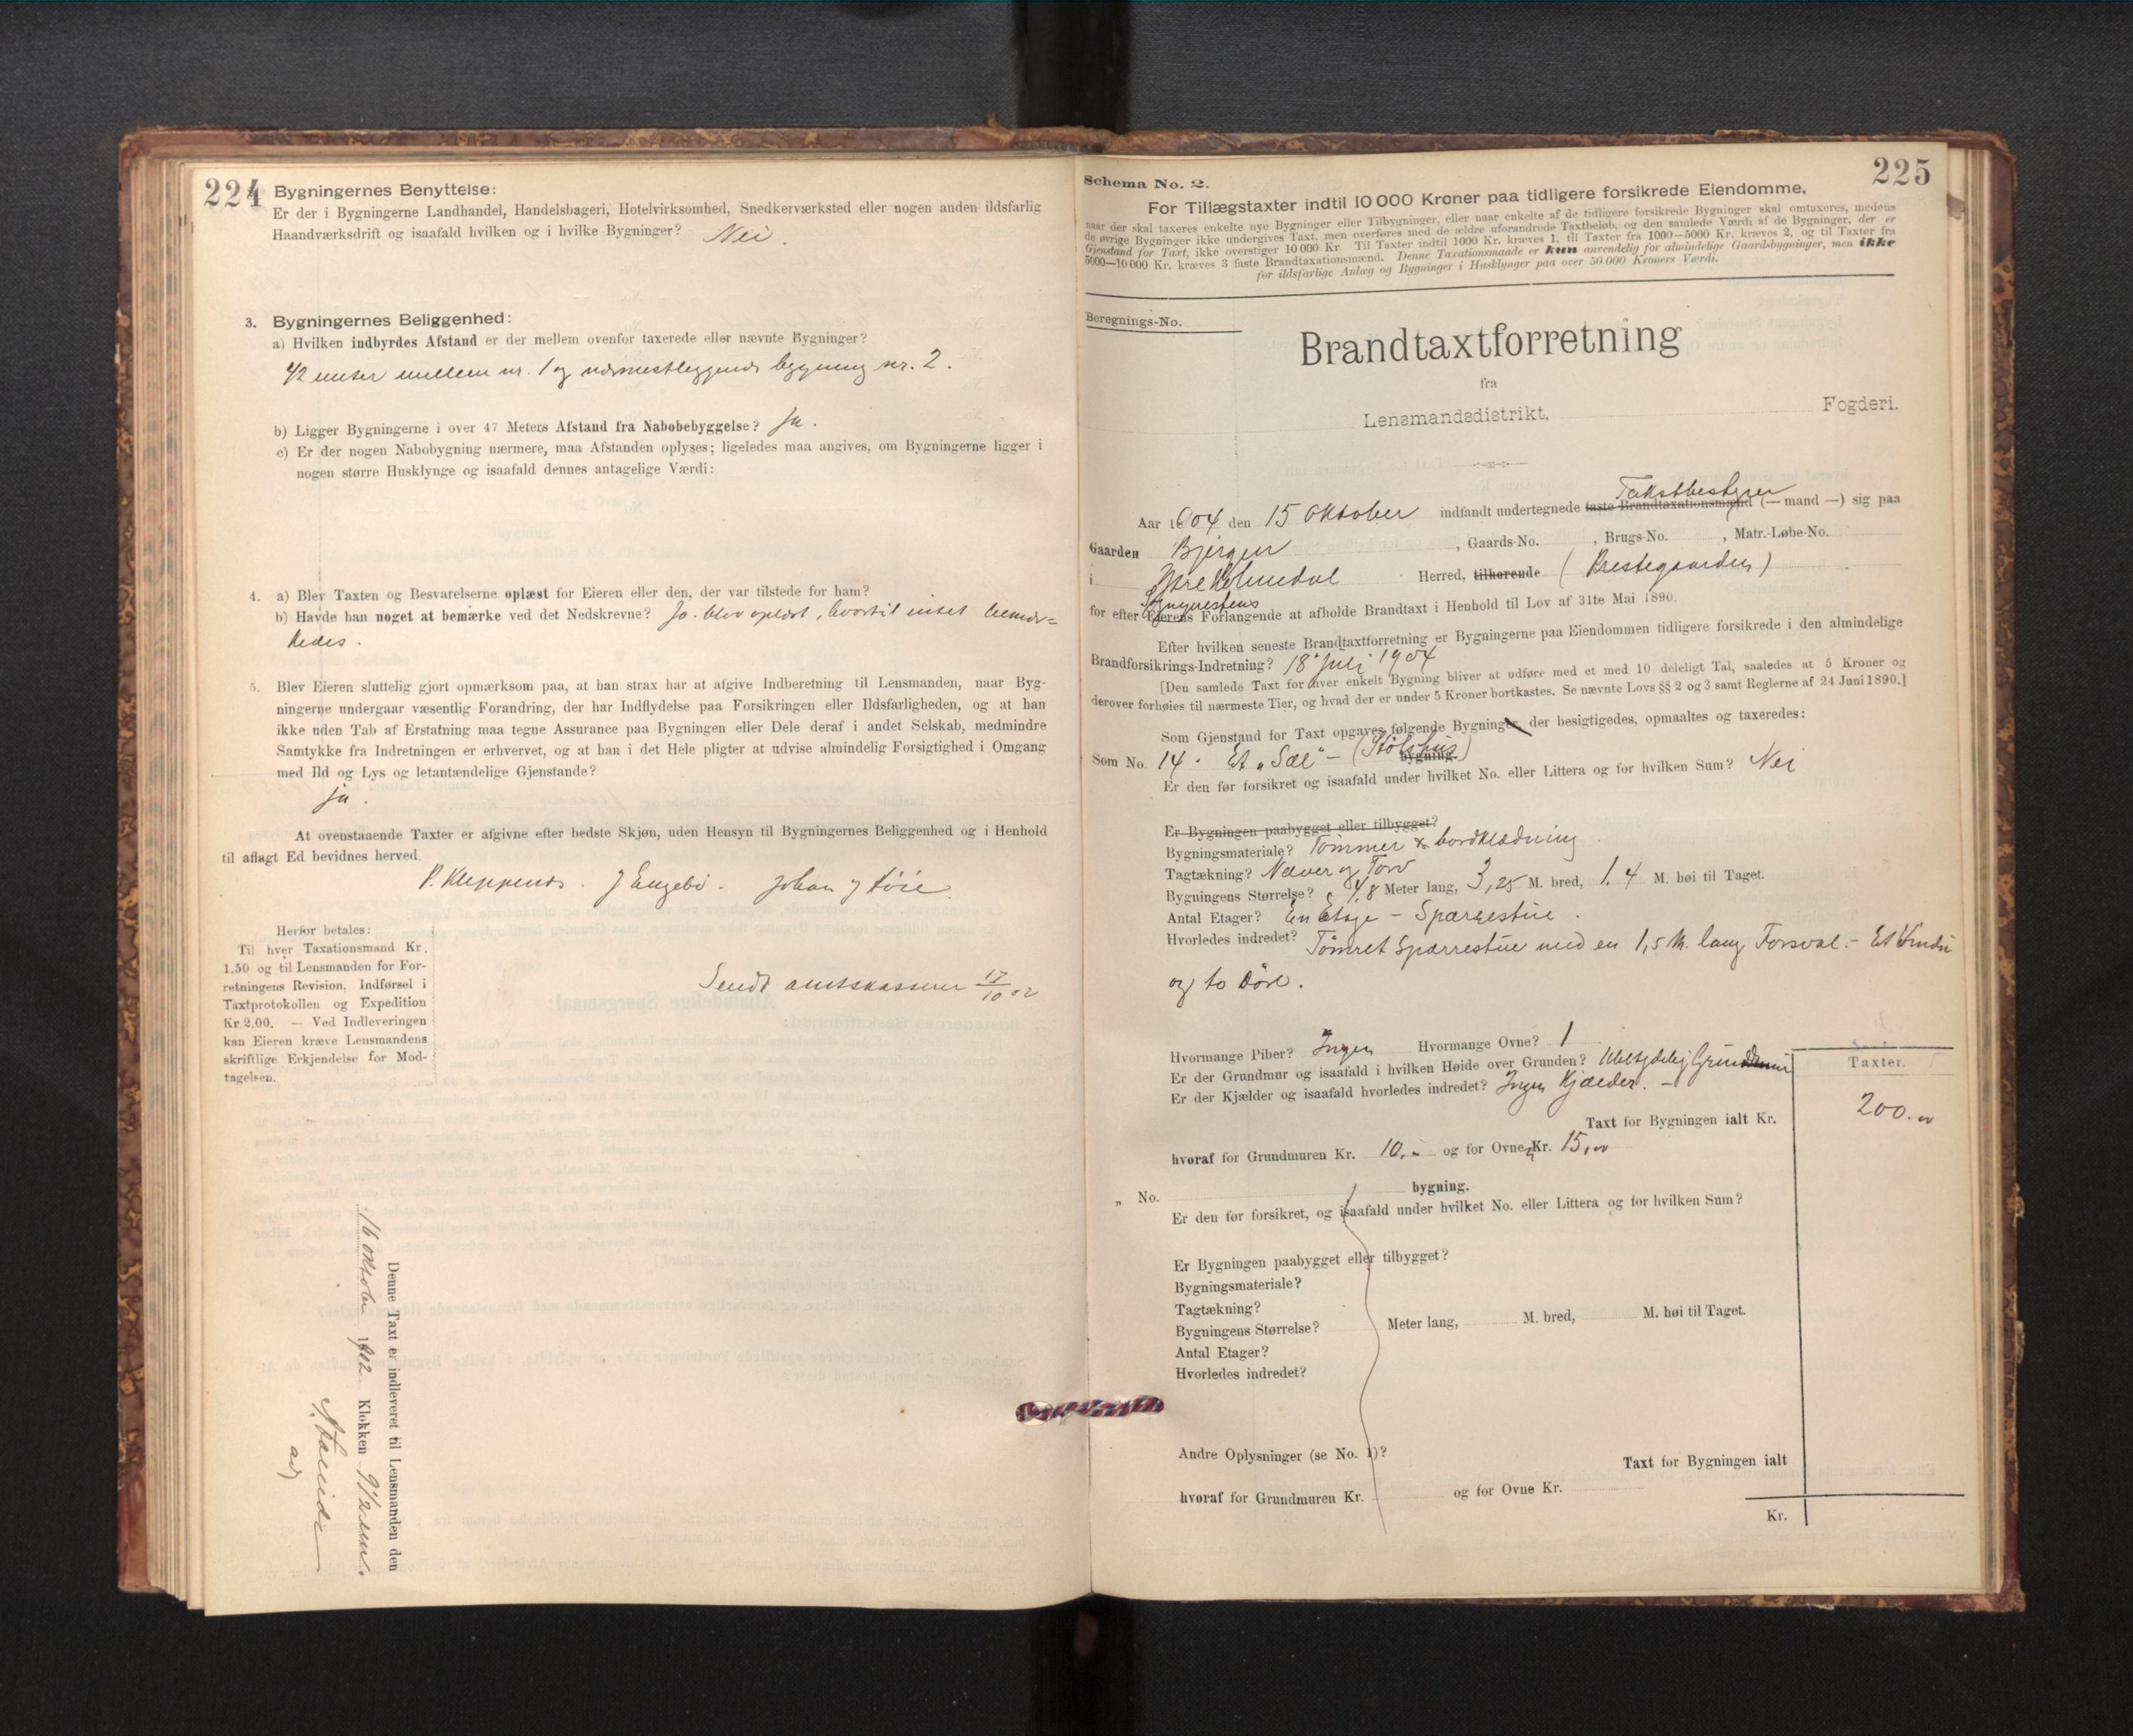 224
Bygningernes Benyttelse:
Er der i Bygningerne Landhandel, Handelsbageri, Hotelvirksomhed, Snedkerværksted eller nogen anden ildsfarlig
Haandværksdrift og isaafald hvilken og i hvilke Bygninger? Nei.
3. Bygningernes Beliggenhed:
a) Hvilken indbyrdes Afstand er der mellem ovenfor taxerede eller nævnte Bygninger?
42 meter mellem nr. 1 og nærmestliggende bygning nr. 2.
b) Ligger Bygningerne i over 47 Meters Afstand fra Nabobebyggelse? Ja.
c) Er der nogen Nabobygning nærmere, maa Afstanden oplyses; ligeledes maa angives, om Bygningerne ligger i
nogen større Husklynge og isaafald dennes antagelige Værdi:
4. a) Blev Taxten og Besvarelserne oplæst for Eieren eller den, der var tilstede for ham?
b) Havde han noget at bemærke ved det Nedskrevne? Ja. blev oplæst, hvortil intet bemær=
kedes.
5. Blev Eieren sluttelig gjort opmærksom paa, at han strax har at afgive Indberetning til Lensmanden, naar Byg-
ningerne undergaar væsentlig Forandring, der har Indflydelse paa Forsikringen eller Ildsfarligheden, og at han
ikke uden Tab af Erstatning maa tegne Assurance paa Bygningen eller Dele deraf i andet Selskab, medmindre
Samtykke fra Indretningen er erhvervet, og at han i det Hele pligter at udvise almindelig Forsigtighed i Omgang
med Ild og Lys og letantændelige Gjenstande?
ja.
At ovenstaaende Taxter er afgivne efter bedste Skjøn, uden Hensyn til Bygningernes Beliggenhed og i Henhold
til aflagt Ed bevidnes herved.
P. Kleppenes. J Engebø. Johan J Løie.
Herfor betales:
Til hver Taxationsmand Kr.
1.50 og til Lensmanden for For-
retningens Revision, Indførsel i
Taxtprotokollen og Expedition
Kr. 2.00. — Ved Indleveringen
kan Eieren kræve Lensmandens
skriftlige Erkjendelse for Mod-
tagelsen.
Sendt amtskasseren 17/10 02
Denne Taxt er indleveret til Lensmanden den
16 oktober 1902 Klokken 9 1/2 em.
225
Schema No. 2.
For Tillægstaxter indtil 10 000 Kroner paa tidligere forsikrede Eiendomme,
naar der skal taxeres enkelte nye Bygninger eller Tilbygninger, eller naar enkelte af de tidligere forsikrede Bygninger skal omtaxeres, medens
de øvrige Bygninger ikke undergives Taxt, men overføres med de ældre uforandrede Taxtbeløb, og den samlede Værdi af de Bygninger, der er
Gjenstand for Taxt, ikke overstiger 10 000 Kr. Til Taxter indtil 1000 Kr. kræves 1, til Taxter fra 1000—5000 Kr. kræves 2, og til Taxter fra
5000—10 000 Kr. kræves 3 faste Brandtaxationsmænd. Denne Taxationsmaade er kun anvendelig for almindelige Gaardsbygninger, men ikke
for ildsfarlige Anlæg og Bygninger i Husklynger paa over 50 000 Kroners Værdi.
Beregnings-No.
Brandtaxtforretning
fra
Lensmandsdistrikt, Fogderi.
Takstbestyrer
Aar 1904 den 15 Oktober indfandt undertegnede faste Brandtaxationsmænd (— mand —) sig paa
Gaarden Bjergen, Gaards-No. , Brugs-No. , Matr.-Løbe-No.
i Ytre Holmedal Herred, tilhørende (Prestegaarden)
for efter Eierens Forlangende at afholde Brandtaxt i Henhold til Lov af 31te Mai 1890.
Efter hvilken seneste Brandtaxtforretning er Bygningerne paa Eiendommen tidligere forsikrede i den almindelige
Brandforsikrings-Indretning? 18 Juli 1904
[Den samlede Taxt for hver enkelt Bygning bliver at udføre med et med 10 deleligt Tal, saaledes at 5 Kroner og
derover forhøies til nærmeste Tier, og hvad der er under 5 Kroner bortkastes. Se nævnte Lovs §§ 2 og 3 samt Reglerne af 24 Juni 1890.]
Som Gjenstand for Taxt opgaves følgende Bygninger, der besigtigedes, opmaaltes og taxeredes:
Som No. 14. Et „Sæl" — (Støls hus) bygning.
Er den før forsikret og isaafald under hvilket No. eller Littera og for hvilken Sum? Nei
Er Bygningen paabygget eller tilbygget?
Bygningsmateriale? Tømmer & bordklædning.
Tagtækning? Næver og Torv
Bygningens Størrelse? 4,8 Meter lang, 3,25 M. bred, 1.4 M. høi til Taget.
Antal Etager? En Etage — Sparrestue.
Hvorledes indredet? Tømret Sparrestue med en 1,5 M. lang Forsval. — Et Vindu
og to Døre.
Hvormange Piber? Ingen Hvormange Ovne? 1
Er der Grundmur og isaafald i hvilken Høide over Grunden? Ubetydelig Grundmur
Er der Kjælder og isaafald hvorledes indredet? Ingen Kjælder. —
Taxter.
Taxt for Bygningen ialt Kr. 200.00
hvoraf for Grundmuren Kr. 10,- og for Ovne Kr. 15,00
„ No. bygning.
Er den før forsikret, og isaafald under hvilket No. eller Littera og for hvilken Sum?
Er Bygningen paabygget eller tilbygget?
Bygningsmateriale?
Tagtækning?
Bygningens Størrelse? Meter lang, M. bred, M. høi til Taget.
Antal Etager?
Hvorledes indredet?
Andre Oplysninger (se No. 1)?
Taxt for Bygningen ialt
hvoraf for Grundmuren Kr. og for Ovne Kr.
Kr.